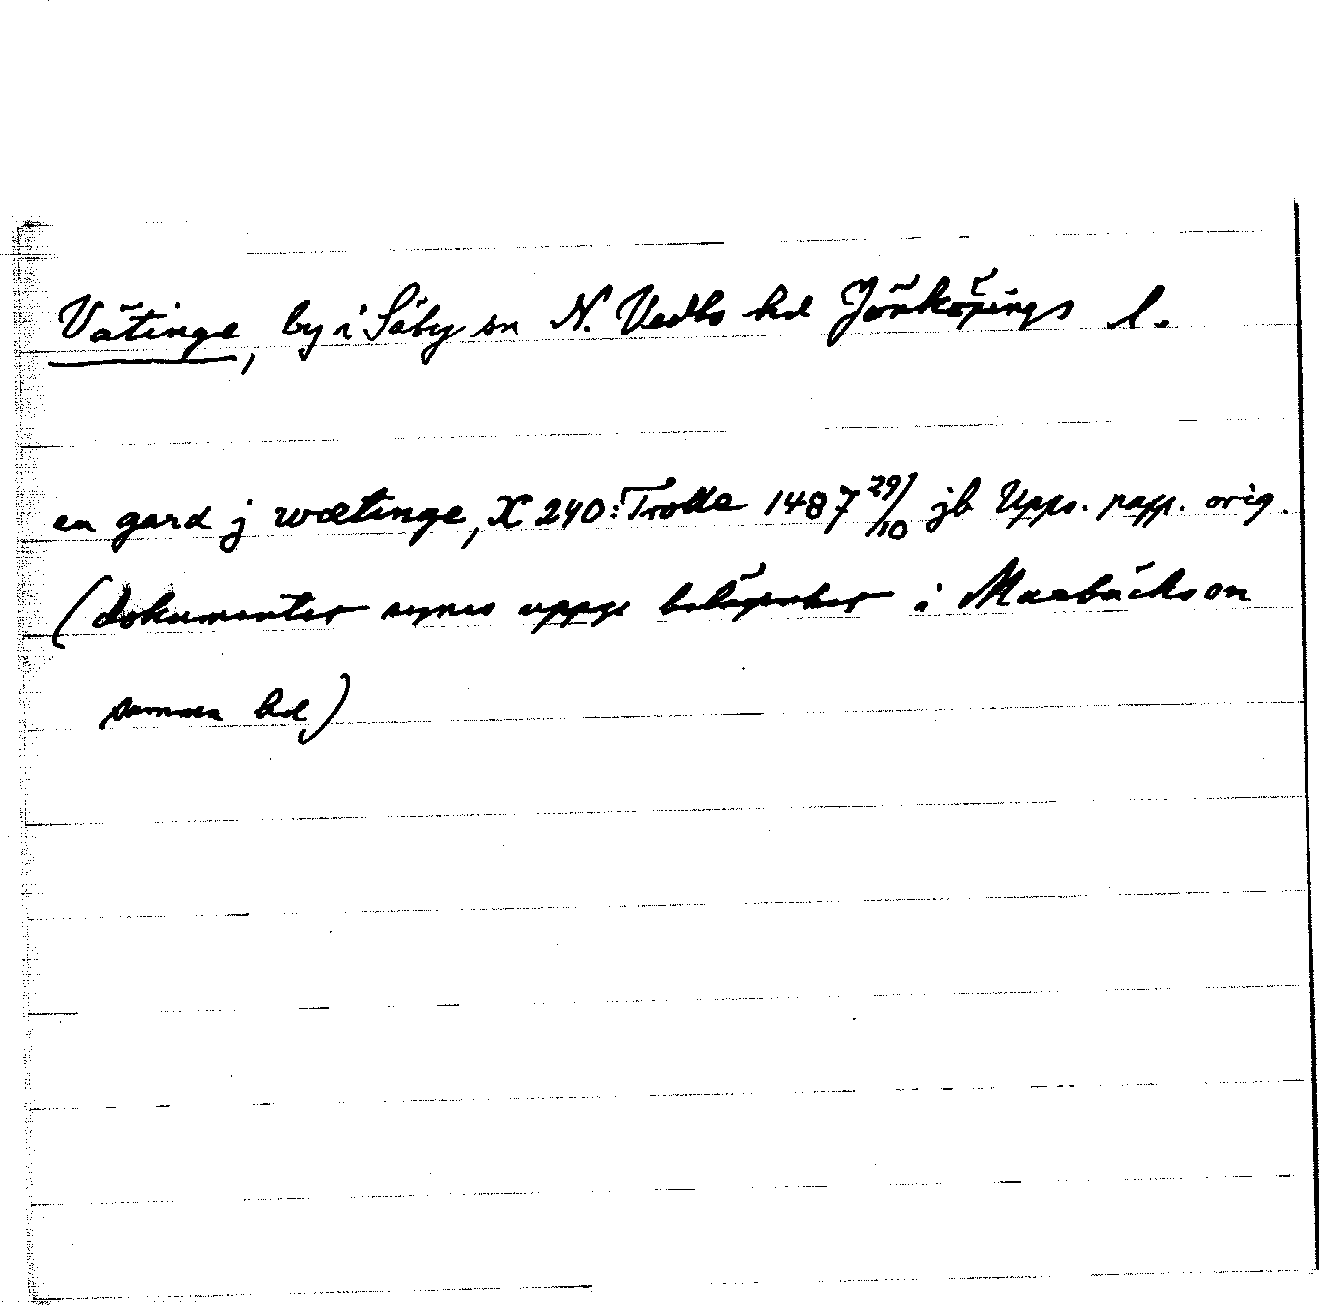 Vätinge, by i Säby sn N. Vedbo hd Jönköpings l.
en gard j wætinge, X 240: Trolle 1487 29/10 jb Upps. papp. orig.
(dokumentet synes uppge belägenhet i Marbäcks sn
samma hd)